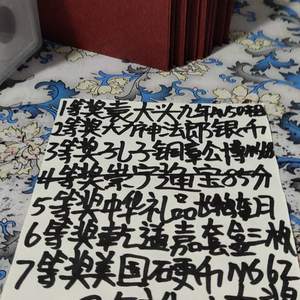 1等奖袁大头九年
2等奖大 神法郎银币
3等奖孔子铜章公博
4等奖崇宁通宝85分
5等奖中华礼品 月
6等奖乾道嘉套盒三枚
7等奖美国硬币MS62